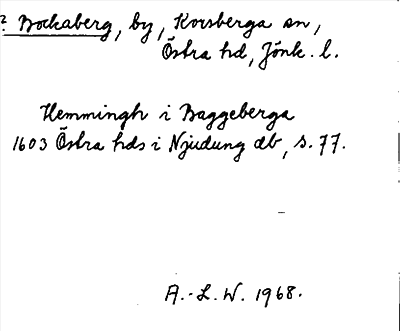 ? Bockaberg, by, Korsberga sn,
Östra hd, Jönk. l.
Hemmingh i Baggeberga
1603 Östra hds i Njudung db, s. 77.
A.-L. W. 1968.